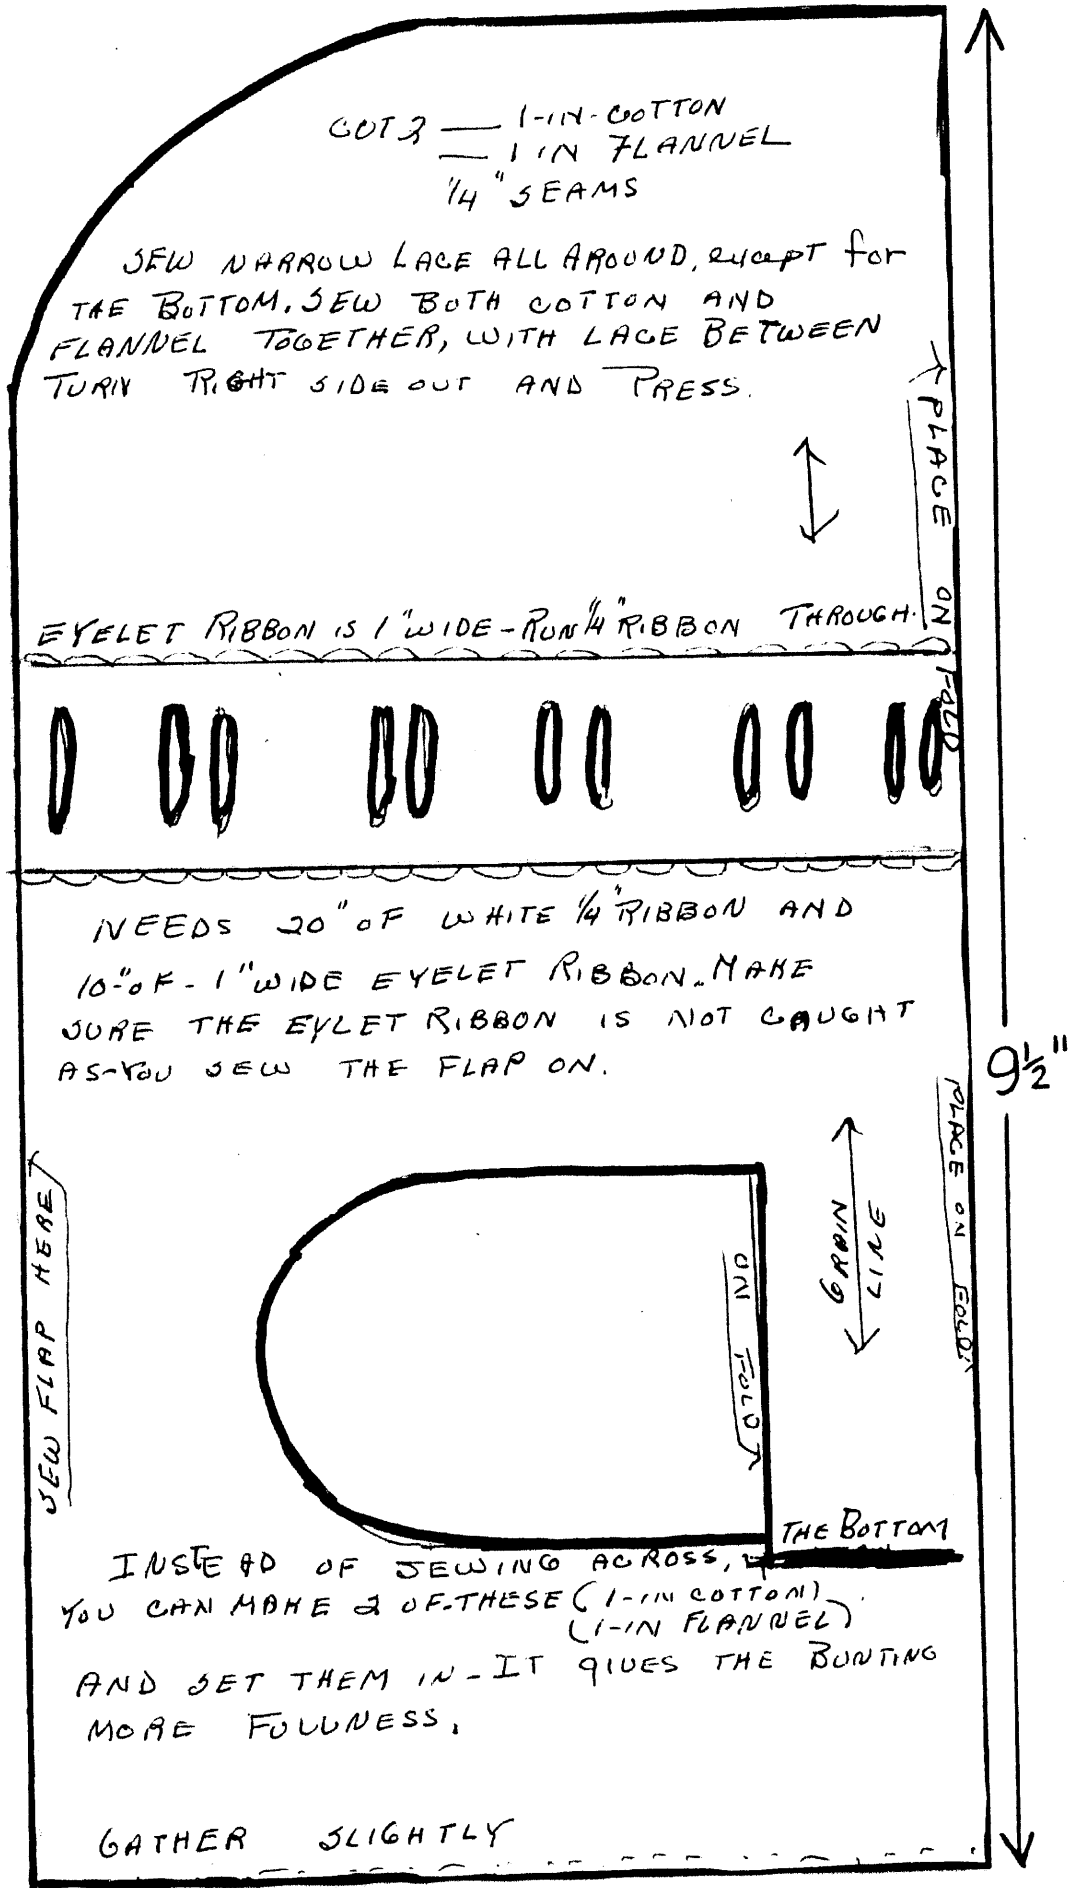 CUT 2 — 1-IN-COTTON
— 1 IN FLANNEL
1/4" SEAMS
SEW NARROW LACE ALL AROUND, except for
THE BOTTOM. SEW BOTH COTTON AND
FLANNEL TOGETHER, WITH LACE BETWEEN
TURN RIGHT SIDE OUT AND PRESS.
PLACE ON FOLD
EYELET RIBBON IS 1" WIDE - RUN 1/4" RIBBON THROUGH.
NEEDS 20" OF WHITE 1/4" RIBBON AND
10-" OF - 1" WIDE EYELET RIBBON. MAKE
SURE THE EYLET RIBBON IS NOT CAUGHT
AS-YOU SEW THE FLAP ON.
9 1/2"
PLACE ON FOLD
SEW FLAP HERE
GRAIN LINE
ON FOLD
THE BOTTOM
INSTEAD OF SEWING ACROSS,
YOU CAN MAKE 2 OF-THESE (1-IN COTTOM)
(1-IN FLANNEL)
AND SET THEM IN - IT GIVES THE BUNTING
MORE FULLNESS.
GATHER SLIGHTLY